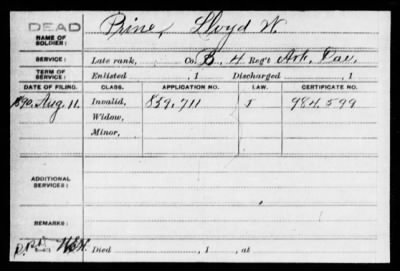 DEAD
NAME OF SOLDIER: Prine, Lloyd W.
SERVICE: Late rank, Co. B, 4 Reg't Ark. Cav.
TERM OF SERVICE: Enlisted , 1 Discharged , 1
DATE OF FILING. CLASS. APPLICATION NO. LAW. CERTIFICATE NO.
1890, Aug. 11. Invalid, 859,711 J 984,599
Widow,
Minor,
ADDITIONAL SERVICES:
REMARKS:
Died , 1 , at